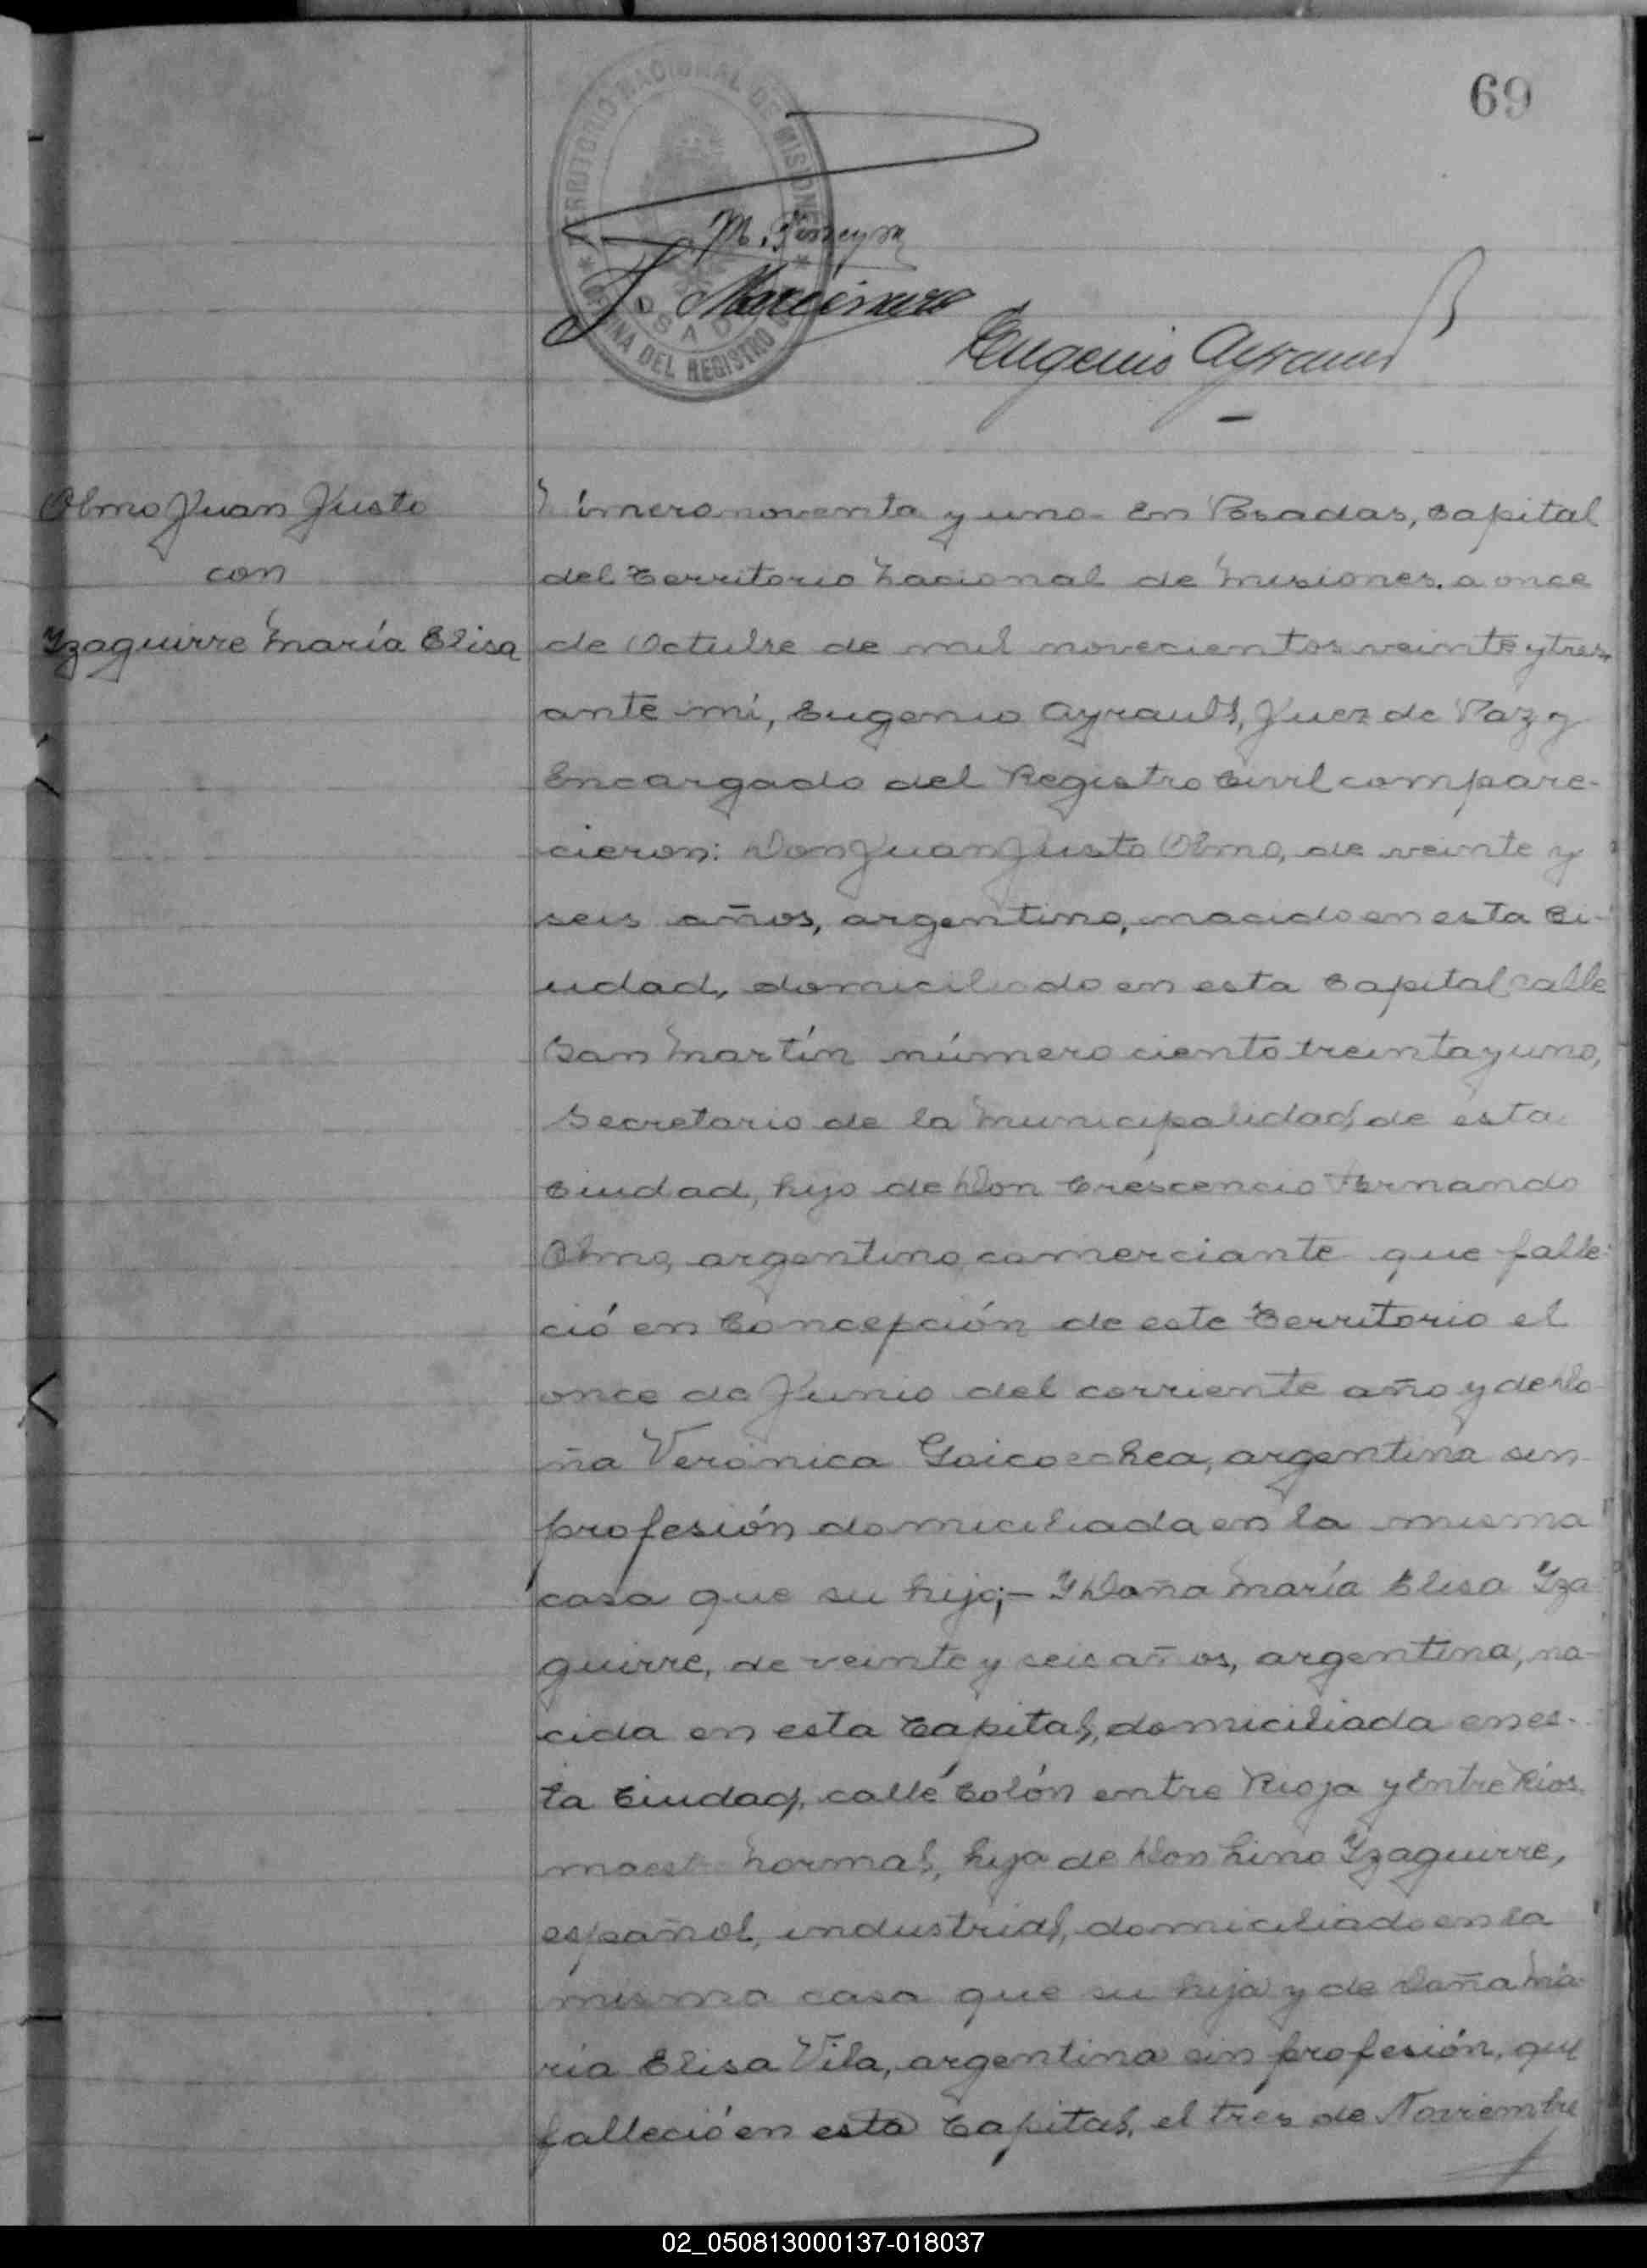 69
TERRITORIO NACIONAL DE MISIONES
OFICINA DEL REGISTRO
Eugenio Ayrault
Olmo Juan Justo
con
Yzaguirre María Elisa
Número noventa y uno. En Posadas, Capital
del Territorio Nacional de Misiones. a once
de Octubre de mil novecientos veinte y tres,
ante mí, Eugenio Ayrault, Juez de Paz y
Encargado del Registro Civil compare-
cieron: Don Juan Justo Olmo, de veinte y
seis años, argentino, nacido en esta Ci-
udad, domiciliado en esta Capital calle
San Martín número ciento treinta y uno,
Secretario de la Municipalidad de esta
Ciudad, hijo de Don Crescencio Fernando
Olmo, argentino comerciante que falle-
ció en Concepción de este Territorio el
once de Junio del corriente año y de Do-
ña Verónica Goicoechea, argentina sin
profesión domiciliada en la misma
casa que su hijo;- Y Doña María Elisa Yza
guirre, de veinte y seis años, argentina, na-
cida en esta Capital, domiciliada en es-
ta Ciudad, calle Colón entre Rioja y Entre Rios
maestra normal, hija de Don Lino Yzaguirre,
español, industrial, domiciliado en la
misma casa que su hija y de Doña Ma-
ría Elisa Vila, argentina sin profesión, que
falleció en esta Capital, el tres de Noviembre
02_050813000137-018037